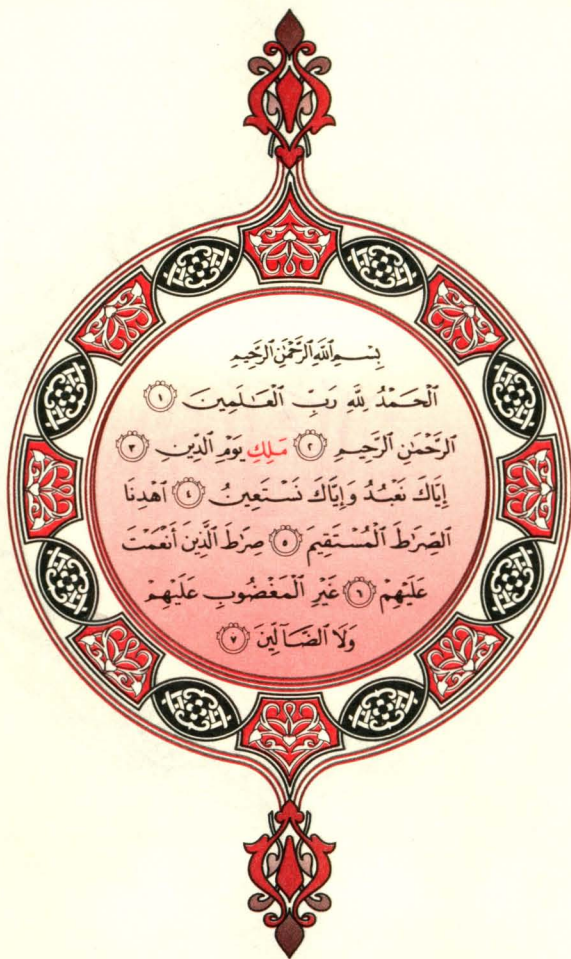 بِسْمِ اللَّهِ الرَّحْمَٰنِ الرَّحِيمِ
اَلْحَمْدُ لِلَّهِ رَبِّ اَلْعَٰلَمِينَ ١
اَلرَّحْمَٰنِ اَلرَّحِيمِ ٢ مَلِكِ يَوْمِ اِلدِّينِ ٣
إِيَّاكَ نَعْبُدُ وَإِيَّاكَ نَسْتَعِينُ ٤ اَهْدِنَا
اَلصِّرَٰطَ اَلْمُسْتَقِيمَ ٥ صِرَٰطَ اَلَّذِينَ أَنْعَمْتَ
عَلَيْهِمْ ٦ غَيْرِ اِلْمَغْضُوبِ عَلَيْهِمْ
وَلَا اَلضَّآلِّينَ ٧